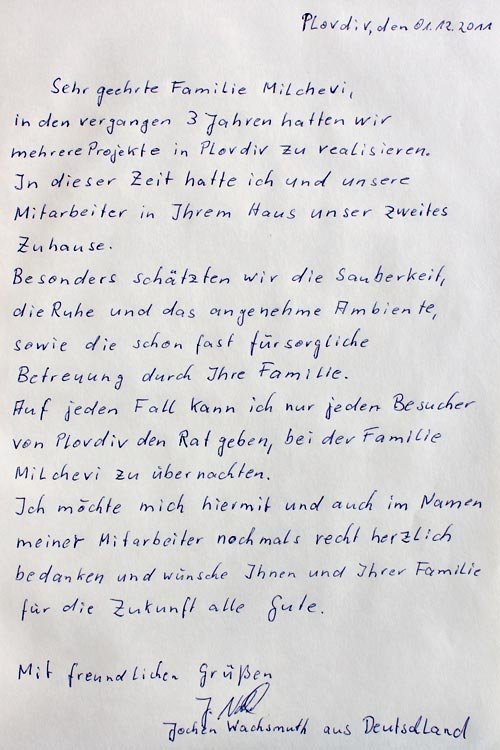 Plovdiv, den 01.12.2011
Sehr geehrte Familie Milchevi,
in den vergangen 3 Jahren hatten wir
mehrere Projekte in Plovdiv zu realisieren.
In dieser Zeit hatte ich und unsere
Mitarbeiter in Ihrem Haus unser zweites
Zuhause.
Besonders schätzten wir die Sauberkeit,
die Ruhe und das angenehme Ambiente,
sowie die schon fast fürsorgliche
Betreuung durch Ihre Familie.
Auf jeden Fall kann ich nur jeden Besucher
von Plovdiv den Rat geben, bei der Familie
Milchevi zu übernachten.
Ich möchte mich hiermit und auch im Namen
meiner Mitarbeiter nochmals recht herzlich
bedanken und wünsche Ihnen und Ihrer Familie
für die Zukunft alle Gute.
Mit freundlichen Grüßen
Jochen Wachsmuth aus Deutschland